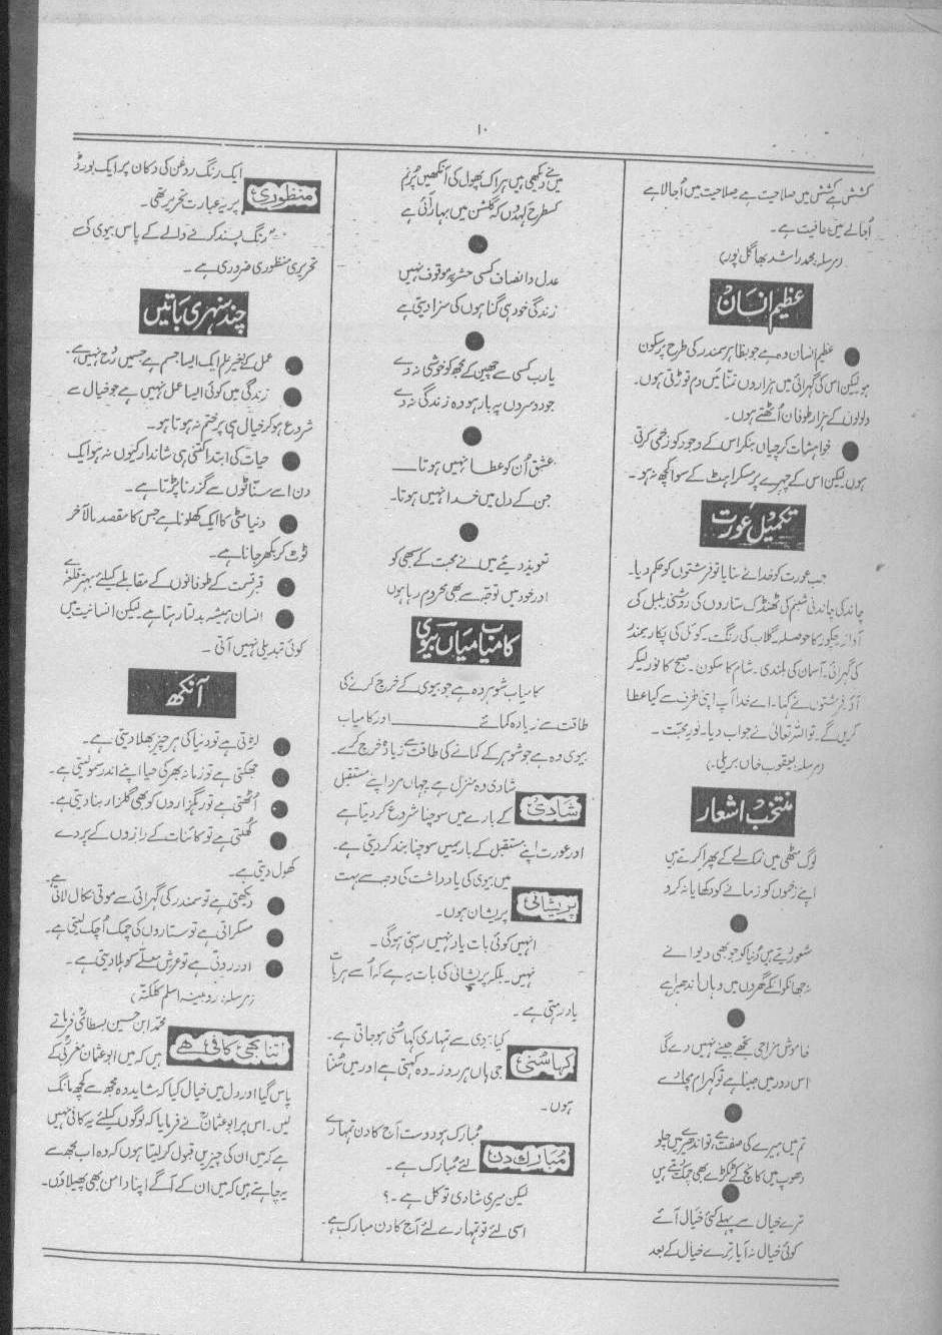 ۱۰
کشش ہے کشش میں صلاحیت ہے صلاحیت میں اُجالا ہے
اُجالے میں عافیت ہے۔
(مرسلہ: محمد راشد بھاگل پور)
عظیم انسان
● عظیم انسان وہ ہے جو بظاہر سمندر کی طرح پرسکون
ہو لیکن اس کی گہرائی میں ہزاروں تمنائیں دم توڑتی ہوں۔
ولولوں کے ہزار طوفان اُٹھتے ہوں۔
● خواہشات کرچیاں بنکر اس کے وجود کو زخمی کرتی
ہوں لیکن اس کے چہرے پر مسکراہٹ کے سوا کچھ نہ ہو۔
تکمیل عورت
جب عورت کو خدا نے بنایا تو فرشتوں کو حکم دیا۔
چاند کی چاندنی شبنم کی ٹھنڈک ستاروں کی روشنی بلبل کی
آواز چکور کا حوصلہ۔ گلاب کی رنگت۔ کوئل کی پکار سمندر
کی گہرائی۔ آسمان کی بلندی۔ شام کا سکون۔ صبح کا نور لیکر
آؤ۔ فرشتوں نے کہا۔ اے خدا آپ اپنی طرف سے کیا عطا
کریں گے۔ تو اللہ تعالٰی نے جواب دیا۔ نور محبت۔
(مرسلہ: یعقوب خاں بریلی۔)
منتخب اشعار
لوگ مٹھی میں نمک لے کے پھرا کرتے ہیں
اپنے زخموں کو زمانے کو دکھایا نہ کرو
●
شعور دیتے ہیں دُنیا کو جو بھی دیوانے
نہ جھانکو انکے گھروں میں وہاں اندھیرا ہے
●
خاموش مزاجی تجھے جینے نہیں دے گی
اس دور میں جینا ہے تو کہرام مچا دے
●
تم میں ہیرے کی صفت ہے، تو اندھیرے میں چلو
دھوپ میں کانچ کے ٹکڑے بھی چمک اُٹھتے ہیں
●
ترے خیال سے پہلے کئی خیال آئے
کوئی خیال نہ آیا ترے خیال کے بعد
میں نے دیکھی ہیں ہر اک پھول کی آنکھیں پُرنم
کسطرح کہدوں کہ گلشن میں بہار آئی ہے
●
عدل و انصاف کسی حشر پہ موقوف نہیں
زندگی خود ہی گناہوں کی سزا دیتی ہے
●
یارب کسی سے چھین کے مجھ کو خوشی نہ دے
جو دوسروں پہ بار ہو وہ زندگی نہ دے
●
عشق اُن کو عطا نہیں ہوتا ــــ
جن کے دل میں خدا نہیں ہوتا۔
●
تعویذ دیئے میں نے محبت کے سبھی کو
اور خود میں توجہ سے بھی محروم رہا ہوں
کامیاب میاں بیوی
کامیاب شوہر وہ ہے جو بیوی کے خرچ کرنے کی
طاقت سے زیادہ کمائے ــــــــــ اور کامیاب
بیوی وہ ہے جو شوہر کے کمانے کی طاقت سے زیادہ خرچ کرے۔
شادی وہ منزل ہے جہاں مرد اپنے مستقبل
شادی
کے بارے میں سوچنا شروع کر دیتا ہے
اور عورت اپنے مستقبل کے بارے میں سوچنا بند کر دیتی ہے۔
میں بیوی کی یادداشت کی وجہ سے بہت
پریشانی
پریشان ہوں۔
انہیں کوئی بات یاد نہیں رہتی ہوگی۔
نہیں۔ بلکہ پریشانی کی بات یہ ہے کہ اُسے ہر بات
یاد رہتی ہے۔
کیا بیوی سے تمہاری کہا سُنی ہو جاتی ہے۔
کہا سُنی
جی ہاں ہر روز۔ وہ کہتی ہے اور میں سُنتا
ہوں۔
مُبارک ہو دوست آج کا دن تمہارے
مُبارک دن
لئے مُبارک ہے۔
لیکن میری شادی تو کل ہے۔؟
اسی لئے تو تمہارے لئے آج کا دن مبارک ہے۔
ایک رنگ روغن کی دکان پر ایک بورڈ
منظوری
پر یہ عبارت تحریر تھی۔
رنگ پسند کرنے والے کے پاس بیوی کی
تحریری منظوری ضروری ہے۔
چند سنہری باتیں
● عمل کے بغیر علم ایک ایسا جسم ہے جس میں روح نہیں ہے۔
● زندگی میں کوئی ایسا عمل نہیں ہے جو خیال سے
شروع ہو کر خیال ہی پر ختم نہ ہوتا ہو۔
● حیات کی ابتدا کتنی ہی شاندار کیوں نہ ہو ایک
دن اسے سناٹوں سے گزرنا پڑتا ہے۔
● دنیا مٹی کا ایک کھلونا ہے جس کا مقصد بالآخر
ٹوٹ کر بکھر جانا ہے۔
● قبر قسمت کے طوفانوں کے مقابلے کیلئے بہتر قلعہ ہے
● انسان ہمیشہ بدلتا رہتا ہے۔ لیکن انسانیت میں
کوئی تبدیلی نہیں آتی۔
آنکھ
● لڑتی ہے تو دنیا کی ہر چیز بھلا دیتی ہے۔
● جھکتی ہے تو زمانہ بھر کی حیا اپنے اندر سمو لیتی ہے۔
● اُٹھتی ہے تو ریگزاروں کو بھی گلزار بنا دیتی ہے۔
● کُھلتی ہے تو کائنات کے رازوں کے پردے
کھول دیتی ہے۔
● دیکھتی ہے تو سمندر کی گہرائی سے موتی نکال لاتی ہے۔
● مسکراتی ہے تو ستاروں کی چمک اُچک لیتی ہے۔
● اور روتی ہے تو عرش معلٰے کو ہلا دیتی ہے۔
(مرسلہ: روبینہ اسلم کلکتہ)
محمد ابن حسین بسطامیؒ فرماتے
اتنا بھی کافی ہے
ہیں کہ میں ابوعثمان مغربیؒ کے
پاس گیا اور دل میں خیال کیا کہ شاید وہ مجھ سے کچھ مانگ
لیں۔ اس پر ابوعثمانؒ نے فرمایا کہ لوگوں کیلئے یہ کافی نہیں
ہے کہ میں ان کی چیزیں قبول کر لیتا ہوں کہ وہ اب مجھ سے
یہ چاہتے ہیں کہ میں ان کے آگے اپنا دامن بھی پھیلاؤں۔